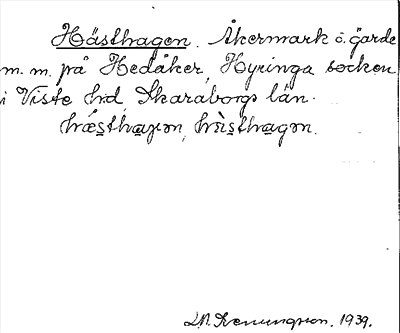 Hästhagen. Åkermark o. gärde
m. m. på Hedåker, Hyringa socken
i Viste hd, Skaraborgs län.
1939.